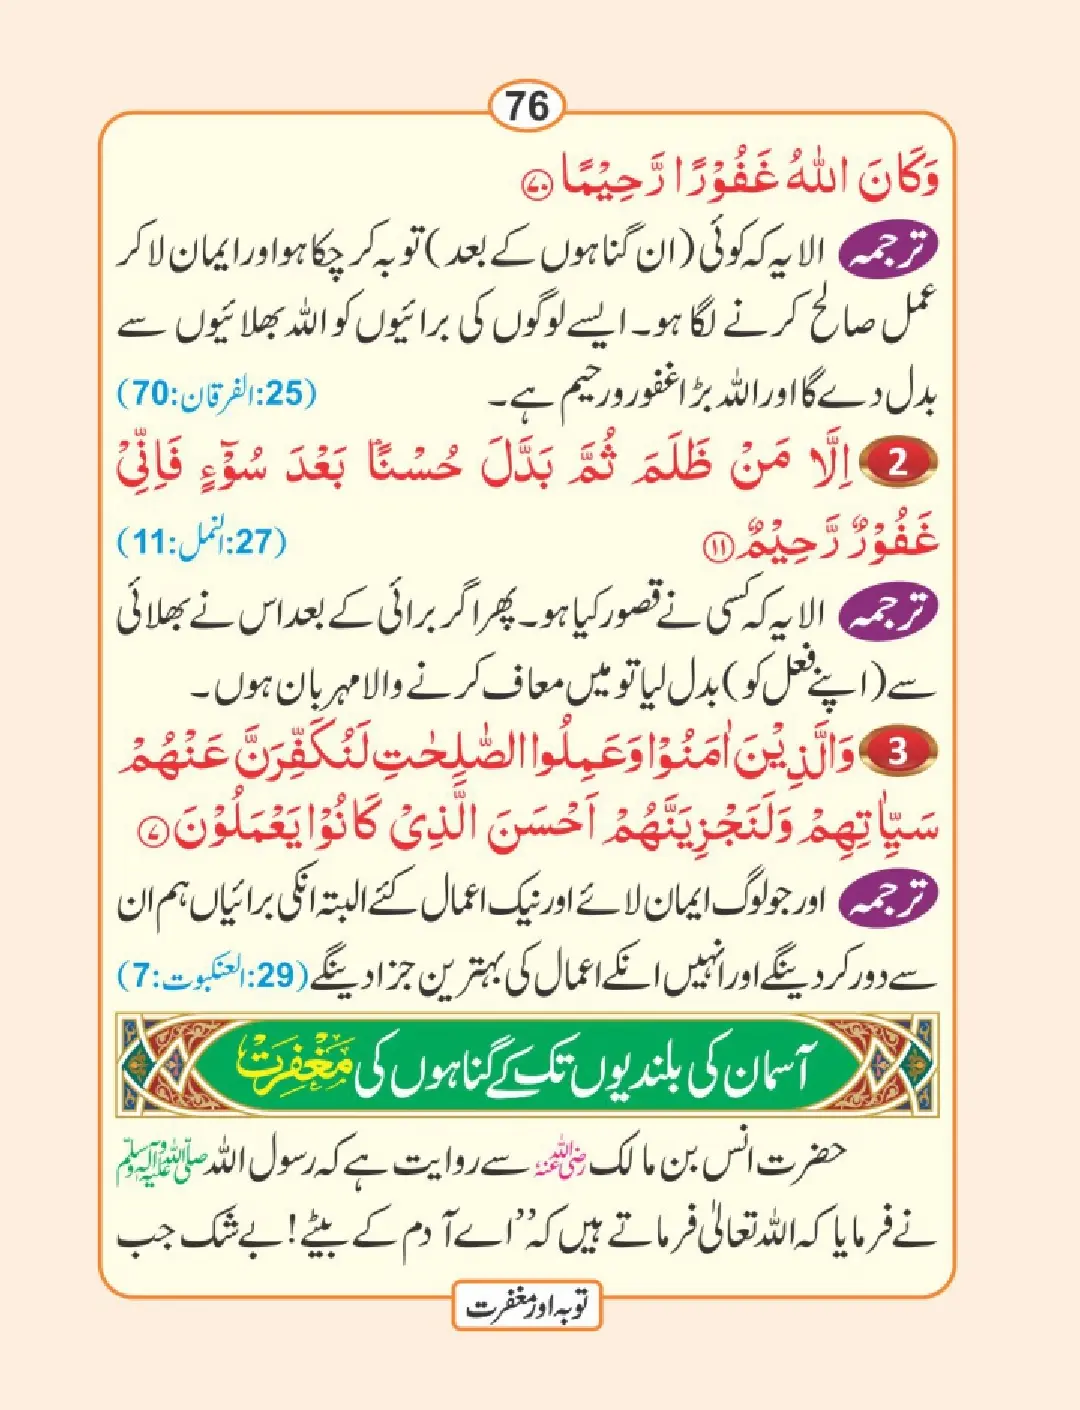 76
وَكَانَ اللّٰهُ غَفُوْرًا رَّحِيْمًا ﴿٧٠﴾
ترجمہ الا یہ کہ کوئی (ان گناہوں کے بعد) توبہ کر چکا ہو اور ایمان لا کر
عمل صالح کرنے لگا ہو۔ ایسے لوگوں کی برائیوں کو اللہ بھلائیوں سے
بدل دے گا اور اللہ بڑا غفور و رحیم ہے۔ (25:الفرقان:70)
2 اِلَّا مَنْ ظَلَمَ ثُمَّ بَدَّلَ حُسْنًاۢ بَعْدَ سُوْٓءٍ فَاِنِّيْ
غَفُوْرٌ رَّحِيْمٌ ﴿١١﴾ (27:النمل:11)
ترجمہ الا یہ کہ کسی نے قصور کیا ہو۔ پھر اگر برائی کے بعد اس نے بھلائی
سے (اپنے فعل کو) بدل لیا تو میں معاف کرنے والا مہربان ہوں۔
3 وَالَّذِيْنَ اٰمَنُوْا وَعَمِلُوا الصّٰلِحٰتِ لَنُكَفِّرَنَّ عَنْهُمْ
سَيِّاٰتِهِمْ وَلَنَجْزِيَنَّهُمْ اَحْسَنَ الَّذِيْ كَانُوْا يَعْمَلُوْنَ ﴿٧﴾
ترجمہ اور جو لوگ ایمان لائے اور نیک اعمال کئے البتہ انکی برائیاں ہم ان
سے دور کر دینگے اور انہیں انکے اعمال کی بہترین جزا دینگے (29:العنکبوت:7)
آسمان کی بلندیوں تک کے گناہوں کی مَغْفِرَت
حضرت انس بن مالک رضی اللہ عنہ سے روایت ہے کہ رسول اللہ صلی اللہ علیہ وآلہ وسلم
نے فرمایا کہ اللہ تعالیٰ فرماتے ہیں کہ ”اے آدم کے بیٹے! بے شک جب
توبہ اور مغفرت